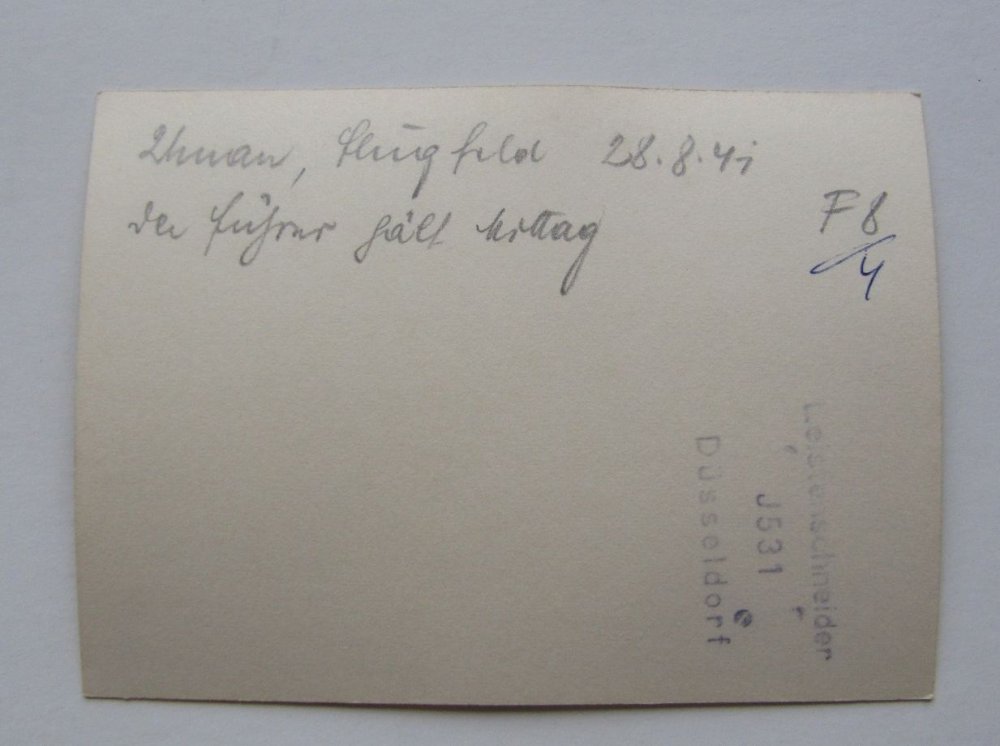 Uman, Flugfeld 28.8.41
der Führer hält Mittag
F 8
4
Leistenschneider
J531
Düsseldorf